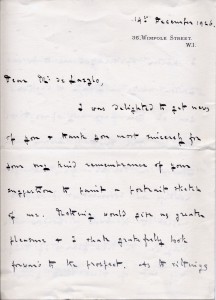 14th December 1926.
36, WIMPOLE STREET.
W.1.
Dear Mr de Laszlo,
I was delighted to get news
of you & thank you most sincerely for
your very kind remembrance of your
suggestion to paint a portrait sketch
of me. Nothing would give me greater
pleasure & I shall gratefully look
forward to the prospect. As the sittings